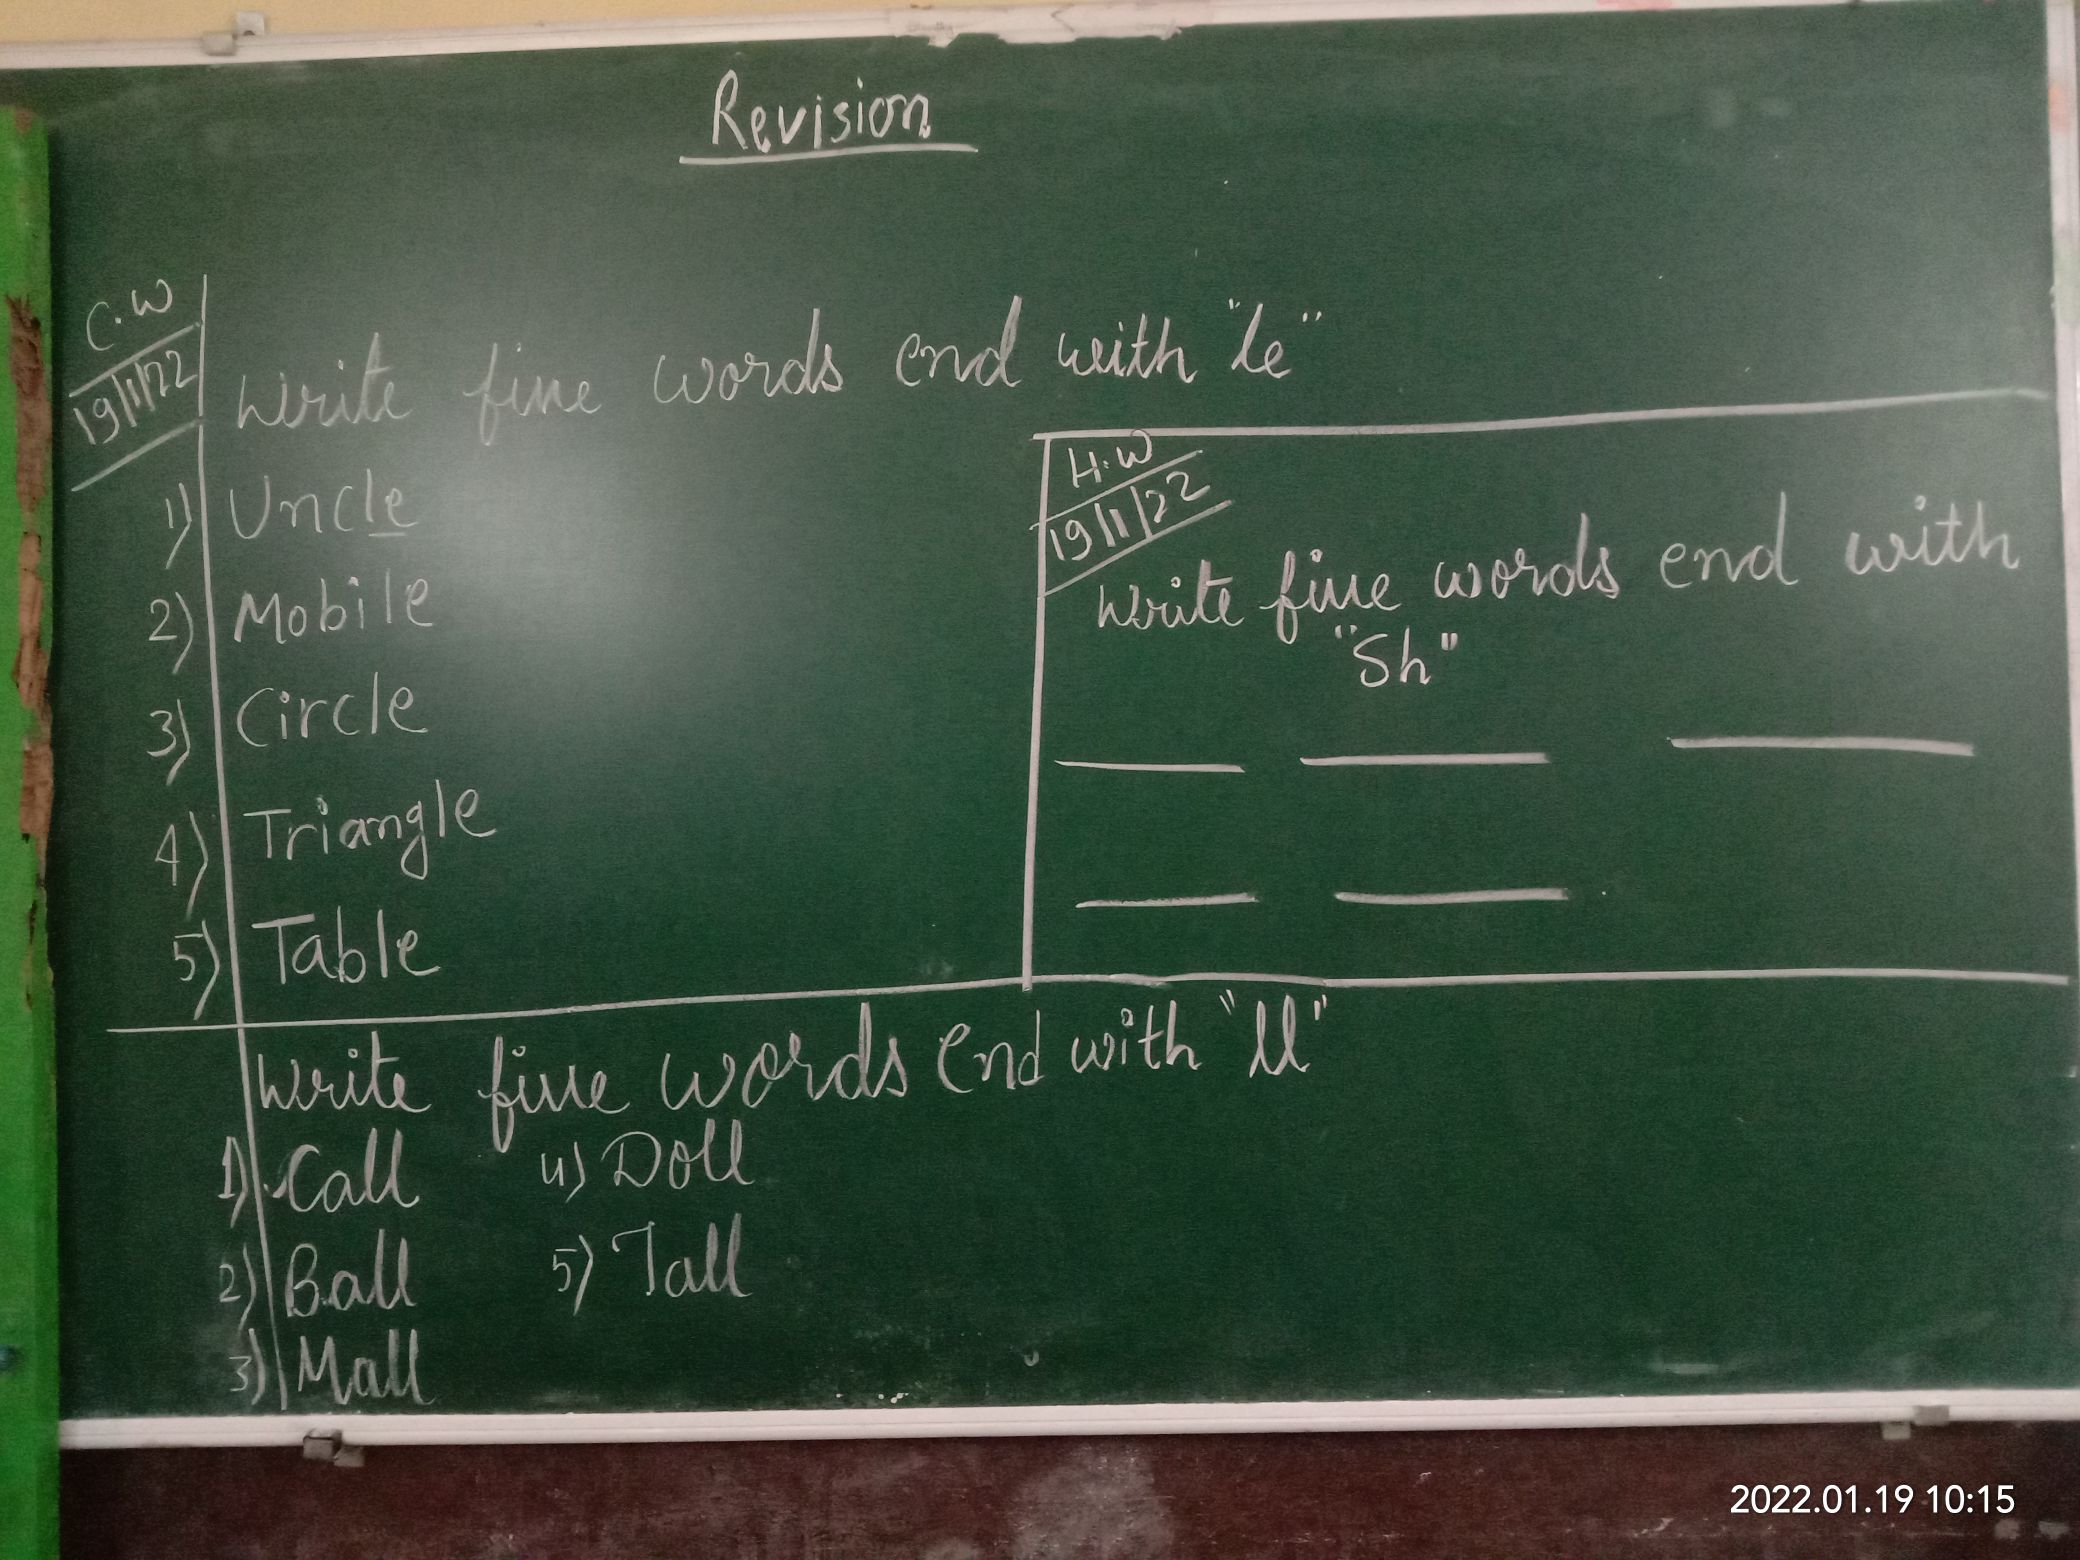 Revision
C.W
19/1/22
Write five words end with "le"
1) Uncle
2) Mobile
3) Circle
4) Triangle
5) Table
H.W
19/1/22
Write five words end with
"Sh"
Write five words end with "ll"
1) Call 4) Doll
2) Ball 5) Tall
3) Mall
2022.01.19 10:15